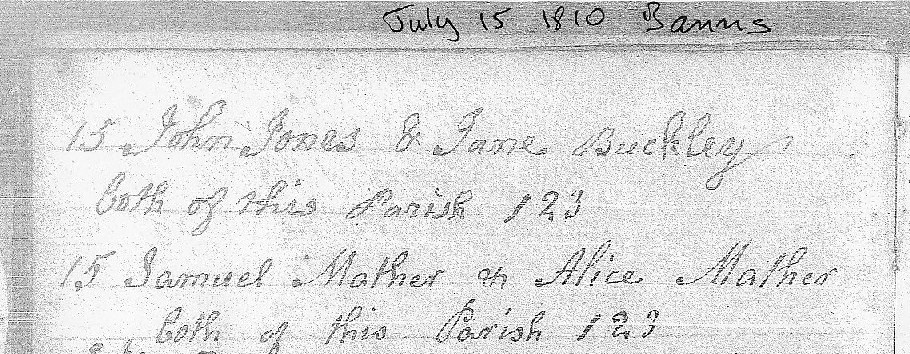 July 15 1810 Banns
15 John Jones & Jane Buckley
both of this Parish 123
15 Samuel Mather & Alice Mather
both of this Parish 123